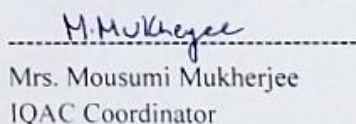 M.Mukherjee
Mrs. Mousumi Mukherjee
IQAC Coordinator